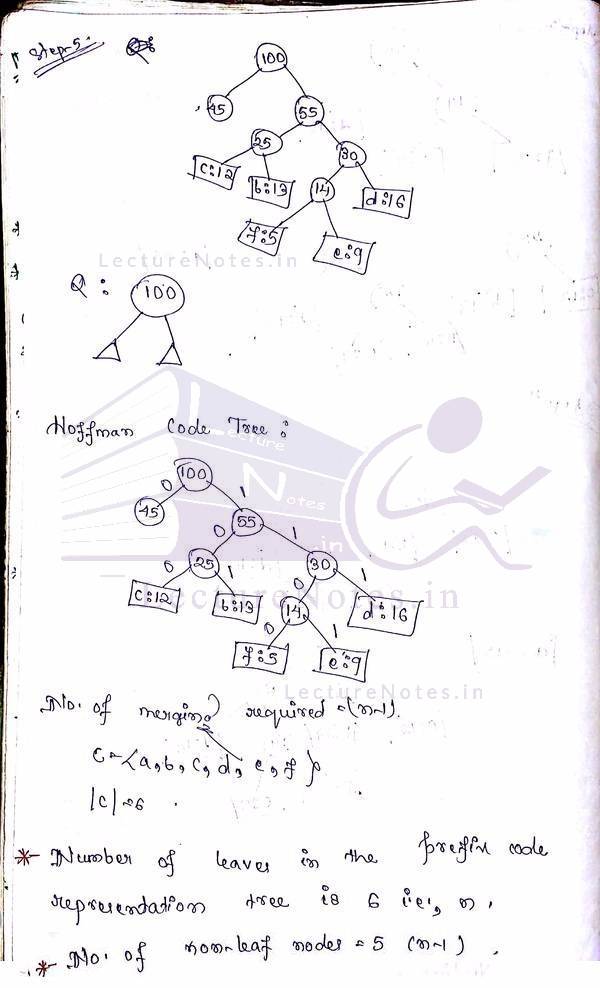 Step-5:
100
45 55
25 30
c:12 b:13 14 d:16
f:5 e:9
LectureNotes.in
Q : 100
Hoffman Code Tree :
Lecture
Notes
.in
0 100 1
45 55
0 1
25 30
0 1 0 1
c:12 b:13 14 d:16
LectureNotes.in
0 1
f:5 e:9
LectureNotes.in
No. of merging required = (n-1).
C = {a, b, c, d, e, f }
|c| = 6
* Number of leaves in the prefix code
representation tree is 6 i.e., n.
* No. of non-leaf nodes = 5 (n-1).